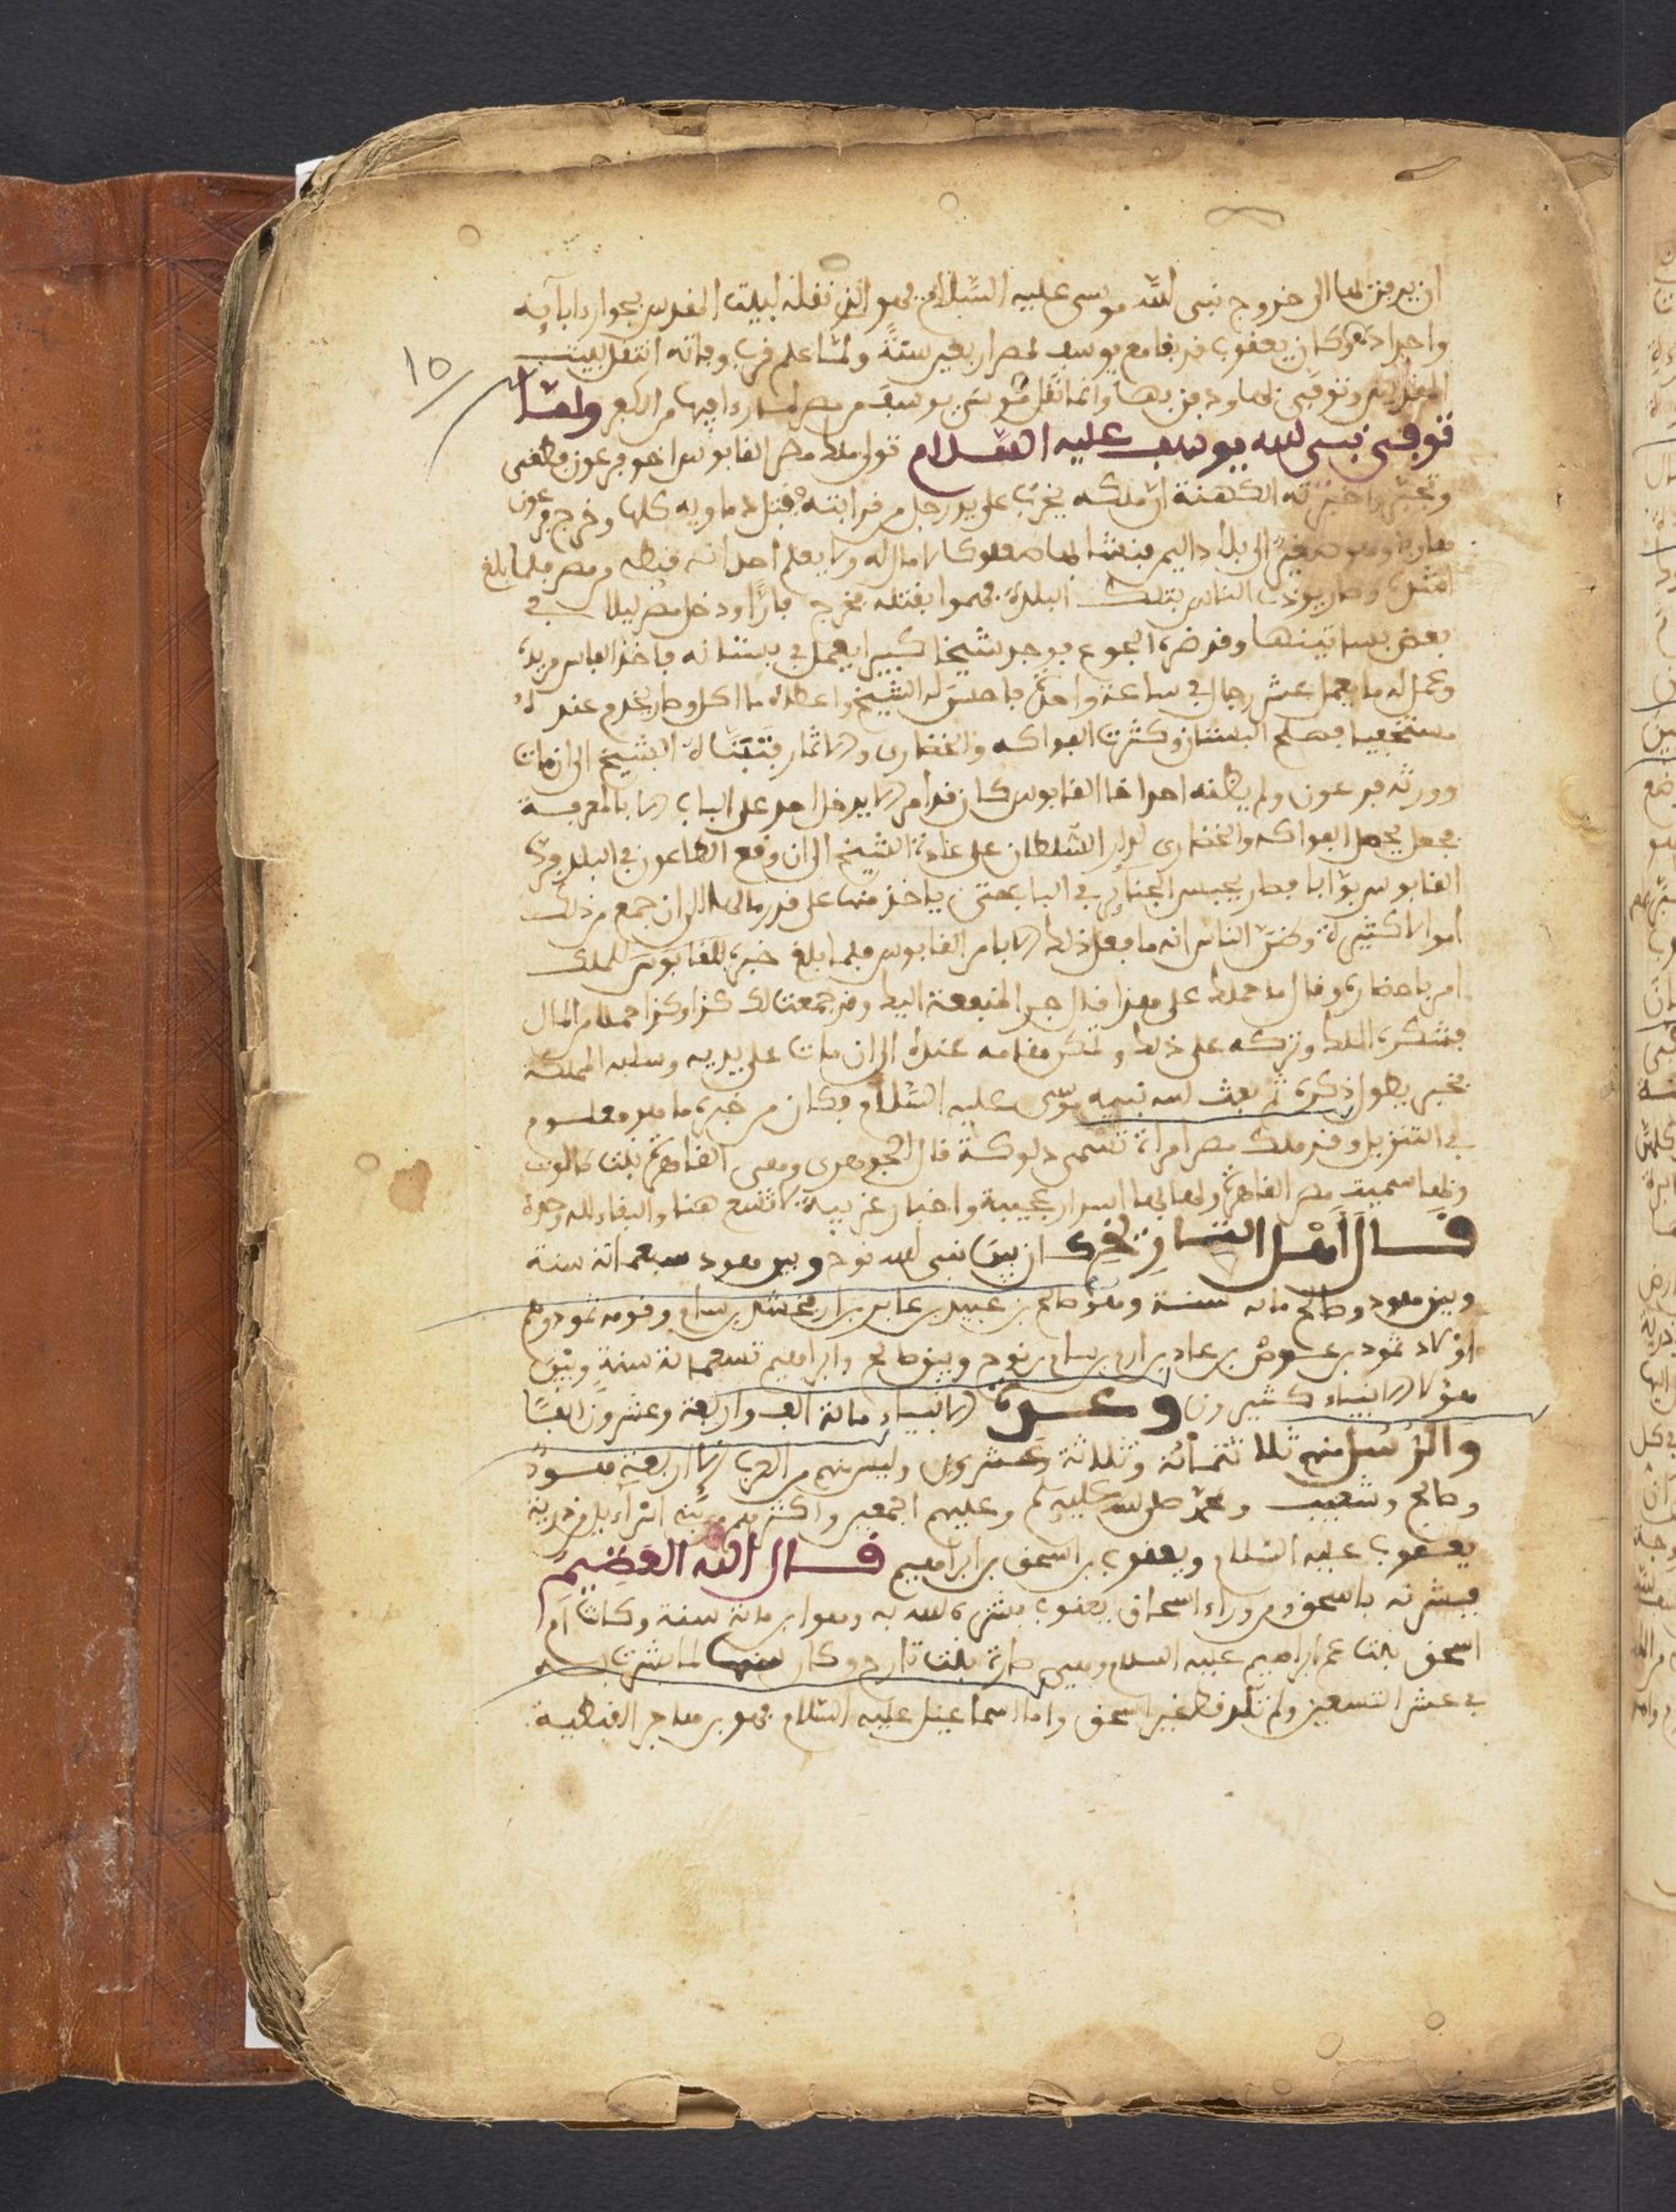 ان يدفن بها الى خروج نبى الله موسى عليه السلام فهو الذى نقله لبيت المقدس بجوار ابآيه
واجداده وكان يعقوب قد بقا مع يوسف بمصر اربعين سنة ولما علم قرب وفاته انتقل لبيت
المقدس وتوفى بها ودفن بها وانما نقل موسى يوسف من مصر لما راى فيها من الكفر ولما
توفى نبى الله يوسف عليه السلام تولى ملك مصر القابوس اخو فرعون فطغى
وتجبر واخبرته الكهنة ان ملكه يخرب على يد رجل من قرابته فقتل اقاربه كلها وخرج فرعون
هاربا وهو صغير الى بلاد اليم فنشا بها صعلوكا لا مال له ولا يعلم احد انه قبطى من مصر فلما بلغ
اشده وصار يوذى الناس بتلك البلدة فهموا بقتله فخرج فارًا ودخل مصر ليلا فى
بعض بساتينها وقد ضره الجوع فوجد شيخا كبيرا يعمل فى بستانه فاخذ الفاس من يده
وعمل له ما يعمل عشر رجال فى ساعة واحدة فاحسن له الشيخ واعطاه ما اكل وصار يخدم عنده
مستخفيا فصلح البستان وكثرت الفواكه والخضارى والاثمار فتبناه الشيخ الى ان مات
وورثه فرعون ولم يظنه احد اخا القابوس كان قد امر لا يدخل احد على الباب الا بالمعرفة
فجعل يحمل الفواكه والخضارى لدار السلطان على عادة الشيخ الى ان وقع الطاعون فى البلد فترك
القابوس بوابا فصار يحبس الجنائز فى الباب حتى ياخذ منها على قدر مالها الى ان جمع من ذلك
اموالا كثيرة وظن الناس انه ما فعل ذلك الا بامر القابوس فلما بلغ خبره للقابوس الملك
امر باحضاره وقال ما حملك على هذا قال جر المنفعة اليك وقد جمعت لك كذا وكذا حملا من المال
فشكره الملك وتركه على ذلك ولمكن مقامه عنده الى ان مات على يديه وسلبه المملكة
فخبر يطول ذكره ثم بعث الله نبيه موسى عليه السلام فكان من خبره ما هو معلوم
فى التنزيل وقد ملك مصر امراة تسمى دلوكة قال الجوهرى ومعنى القاهرة بنت
وبها سميت مصر القاهرة ولها بها اسرار عجيبة واخبار غريبة لا تسع هنا والبقاء لله وحده
قال أهل التاريخ كان بين نبى الله نوح وبين هود سبعمائة سنة
وبين هود وصالح مائة سنة وهو صالح بن عبيد بن عابر بن ارفخشد بن سام وقومه ثمود وهم
اولاد ثمود بن عوض بن عاد بن ارم بن سام بن نوح وبين صالح وابراهيم تسعمائة سنة وبين
هؤلا الانبياء كثيرون وعدة الانبياء مائة الف واربعة وعشرون الفًا
والرسل منهم ثلاثمائة وثلاثة وعشرون وليس منهم من العرب الا اربعة هود
وصالح وشعيب ومحمد صلى الله عليه وسلم وعليهم اجمعين واكثرهم من بنى اسرآءيل من ذرية
يعقوب عليه السلام ويعقوب بن اسحق بن ابراهيم قال الله العظيم
فبشرته باسحق ومن وراء اسحاق يعقوب بشره الله به وهو ابن مائة سنة وكانت ام
اسحق بنت عم ابراهيم عليه السلام وهى سارة بنت تارح وكان سنها لما بشرت به
فى عشر التسعين ولم تلد قط غير اسحق واما اسماعيل عليه السلام فهو من هاجر القبطية
١٥